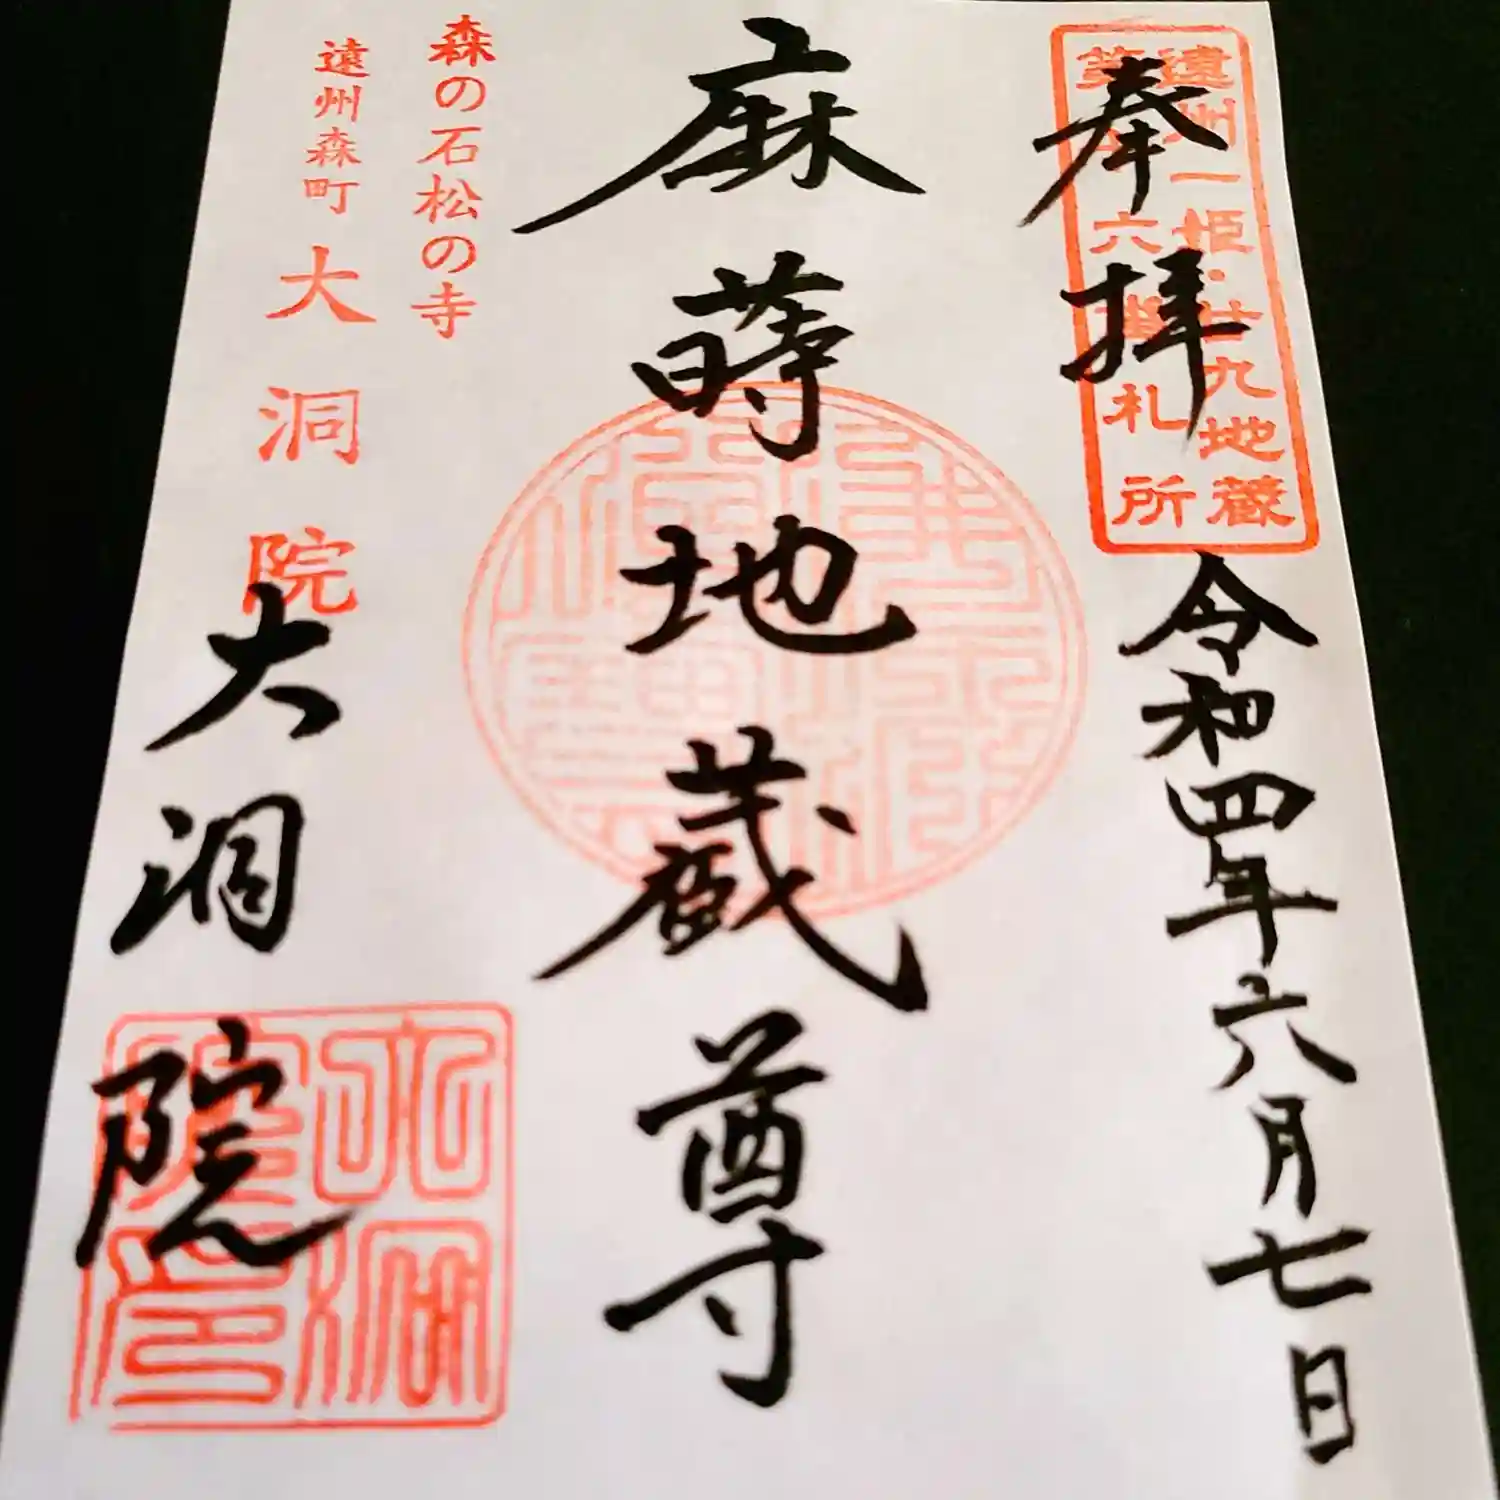 遠州一姫・廿九地蔵
第十六番札所
奉拝
令和四年六月七日
麻蒔地蔵尊
森の石松の寺
遠州森町 大洞院
大洞院